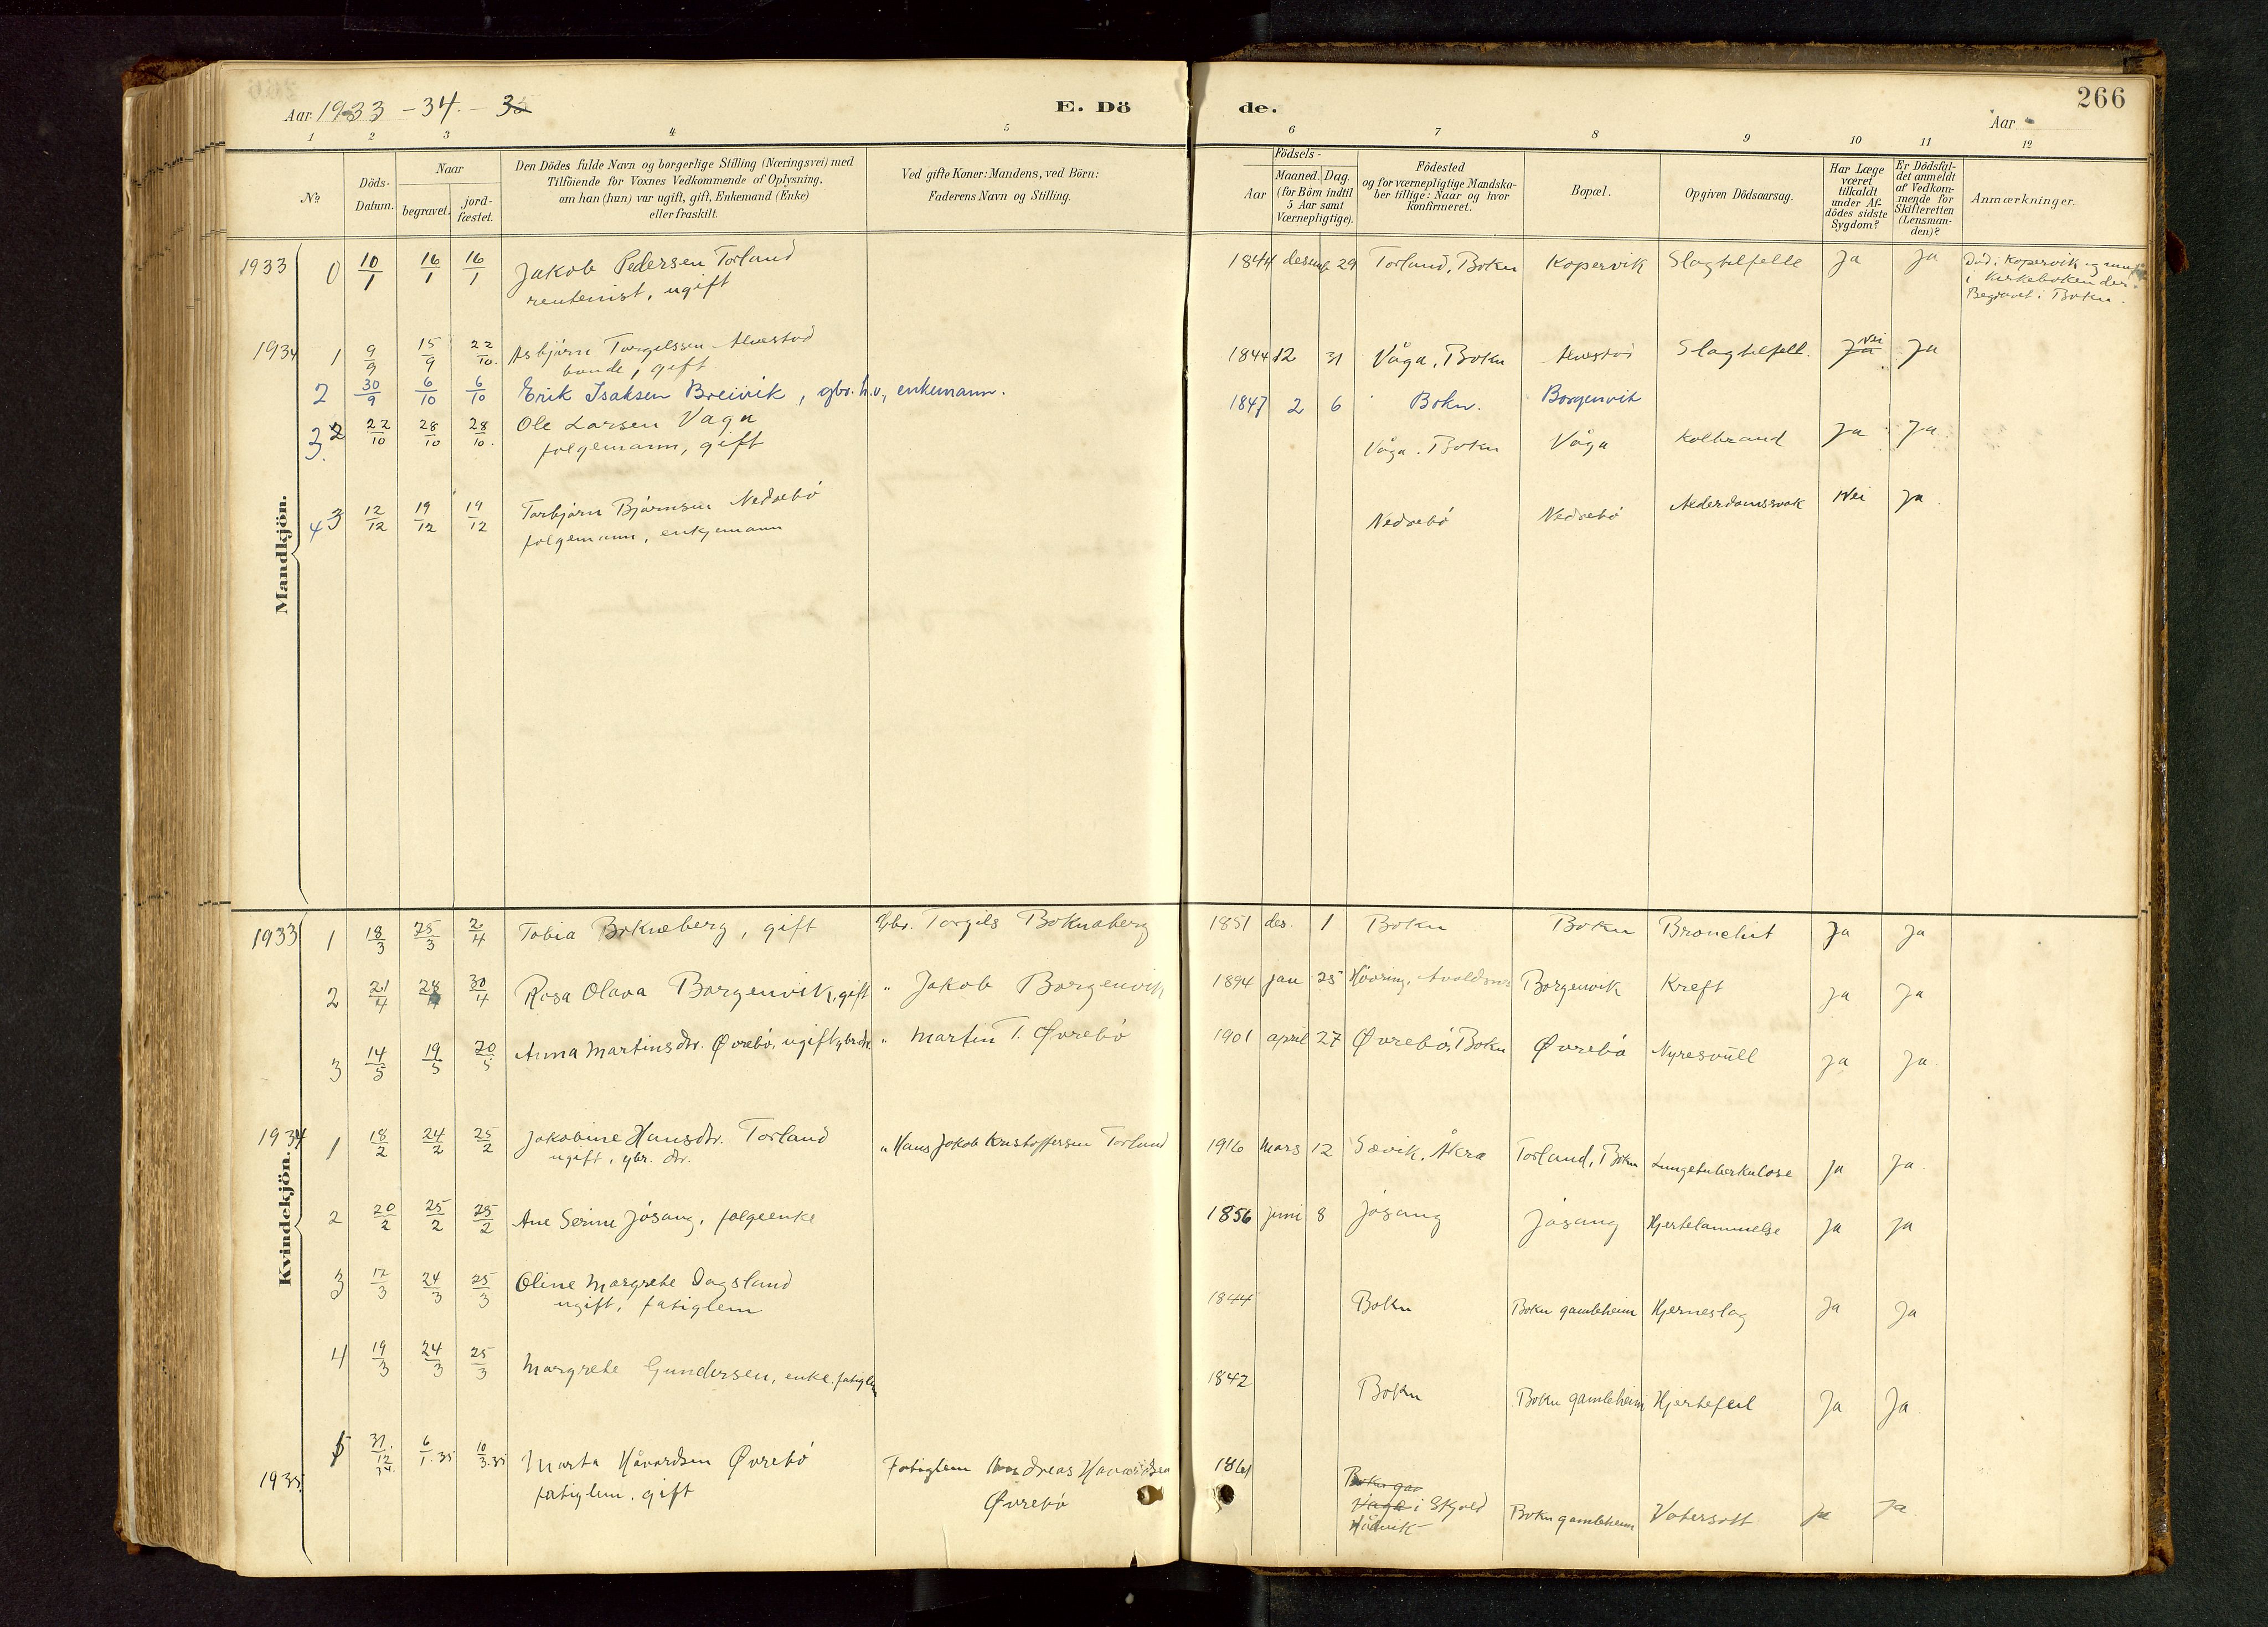 Aar 1933 - 34. - 35
E. Dö de.
266
Aar
1 2 3 4 5 6 7 8 9 10 11 12
No
Döds-
Datum.
Naar
begravet.
jord-
fæstet.
Den Dödes fulde Navn og borgerlige Stilling (Næringsvei) med
Tilföiende for Voxnes Vedkommende af Oplysning.
om han (hun) var ugift, gift, Enkemand (Enke)
eller fraskilt.
Ved gifte Koner: Mandens, ved Börn:
Faderens Navn og Stilling.
Födsels-
Aar
Maaned. Dag.
(for Börn indtil
5 Aar samt
Værnepligtige).
Födested
og for værnepligtige Mandska-
ber tillige: Naar og hvor
konfirmeret.
Bopæl.
Opgiven Dödsaarsag.
Har Læge
været
tilkaldt
under Af-
dödes sidste
Sygdom?
Er Dödsfal-
det anmeldt
af Vedkom-
mende for
Skifteretten
(Lensman-
den)?
Anmærkninger.
Mandkjön.
1933 0 10/1 16/1 16/1 Jakob Pedersen Torland 1844 desemb 29 Torland, Bokn Kopervik Slagtilfelle Ja Ja Död i Kopervik og
rentenist, ugift i kirkeboken der.
Begravet i Bokn.
1934 1 9/9 15/9 22/10. Asbjørn Torgelssen Alvestad 1844 12 31 Våga, Bokn Alvestad Slagtilfelle. Ja nei Ja
bonde, gift
2 30/9 6/10 6/10 Erik Isaksen Breivik, gbr. h.v., enkemann. 1847 2 6 Bokn. Borgenvik
3. 2 22/10 28/10 28/10. Ole Larsen Våga Våga. Bokn Våga Kolbrand Ja Ja.
følgemann, gift
4 3 12/12 19/12 19/12 Torbjørn Bjørnsen Nedrebö Nedrebö Nedrebö Alderdomssvak Nei Ja.
følgemann, enkjemann
Kvindekjön.
1933 1 18/3 25/3 2/4 Tobia Boknaberg, gift Gbr. Torgils Boknaberg 1851 des. 1 Bokn Bokn Bronchit Ja Ja
2 21/4 28/4 30/4 Rosa Olava Borgenvik, gift " Jakob Borgenvik 1894 jan 25 Hövring, Avaldsnes Borgenvik Kreft Ja Ja
3 14/5 19/5 20/5 Anna Martinsdtr. Øvrebö, ugift, gbr.dtr. " Martin T. Øvrebö 1901 april 27 Øvrebö, Bokn Øvrebö Nyresvull Ja Ja.
1934 1 18/2 24/2 25/2 Jakobine Hansdtr. Torland " Hans Jakob Kristoffersen Torland 1916 Mars 12 Sævik, Åkra Torland, Bokn Lungetuberkulose Ja Ja.
ugift, gbr. dtr.
2 20/2 25/2 25/2 Ane Serine Jösang, følgeenke 1856 juni 8 Jösang Jösang Hjertelammelse Ja Ja
3 17/3 24/3 25/3 Oline Margrete Dagsland 1844 Bokn Bokn gamleheim Hjerneslag Ja Ja
ugift, fatiglem
4 19/3 24/3 25/3 Margrete Gundersen, enke. fatiglem 1842 Bokn Bokn gamleheim Hjertefeil Ja Ja.
1935. 5 31/12 34. 6/1. 35 10/3. 35 Marta Håvardsen Øvrebö Fatiglem Andreas Havardsen 1861 Bokn gam
fatiglem. gift Øvrebö Våga i Skjold Bokn gamleheim Vatersott Ja Ja.